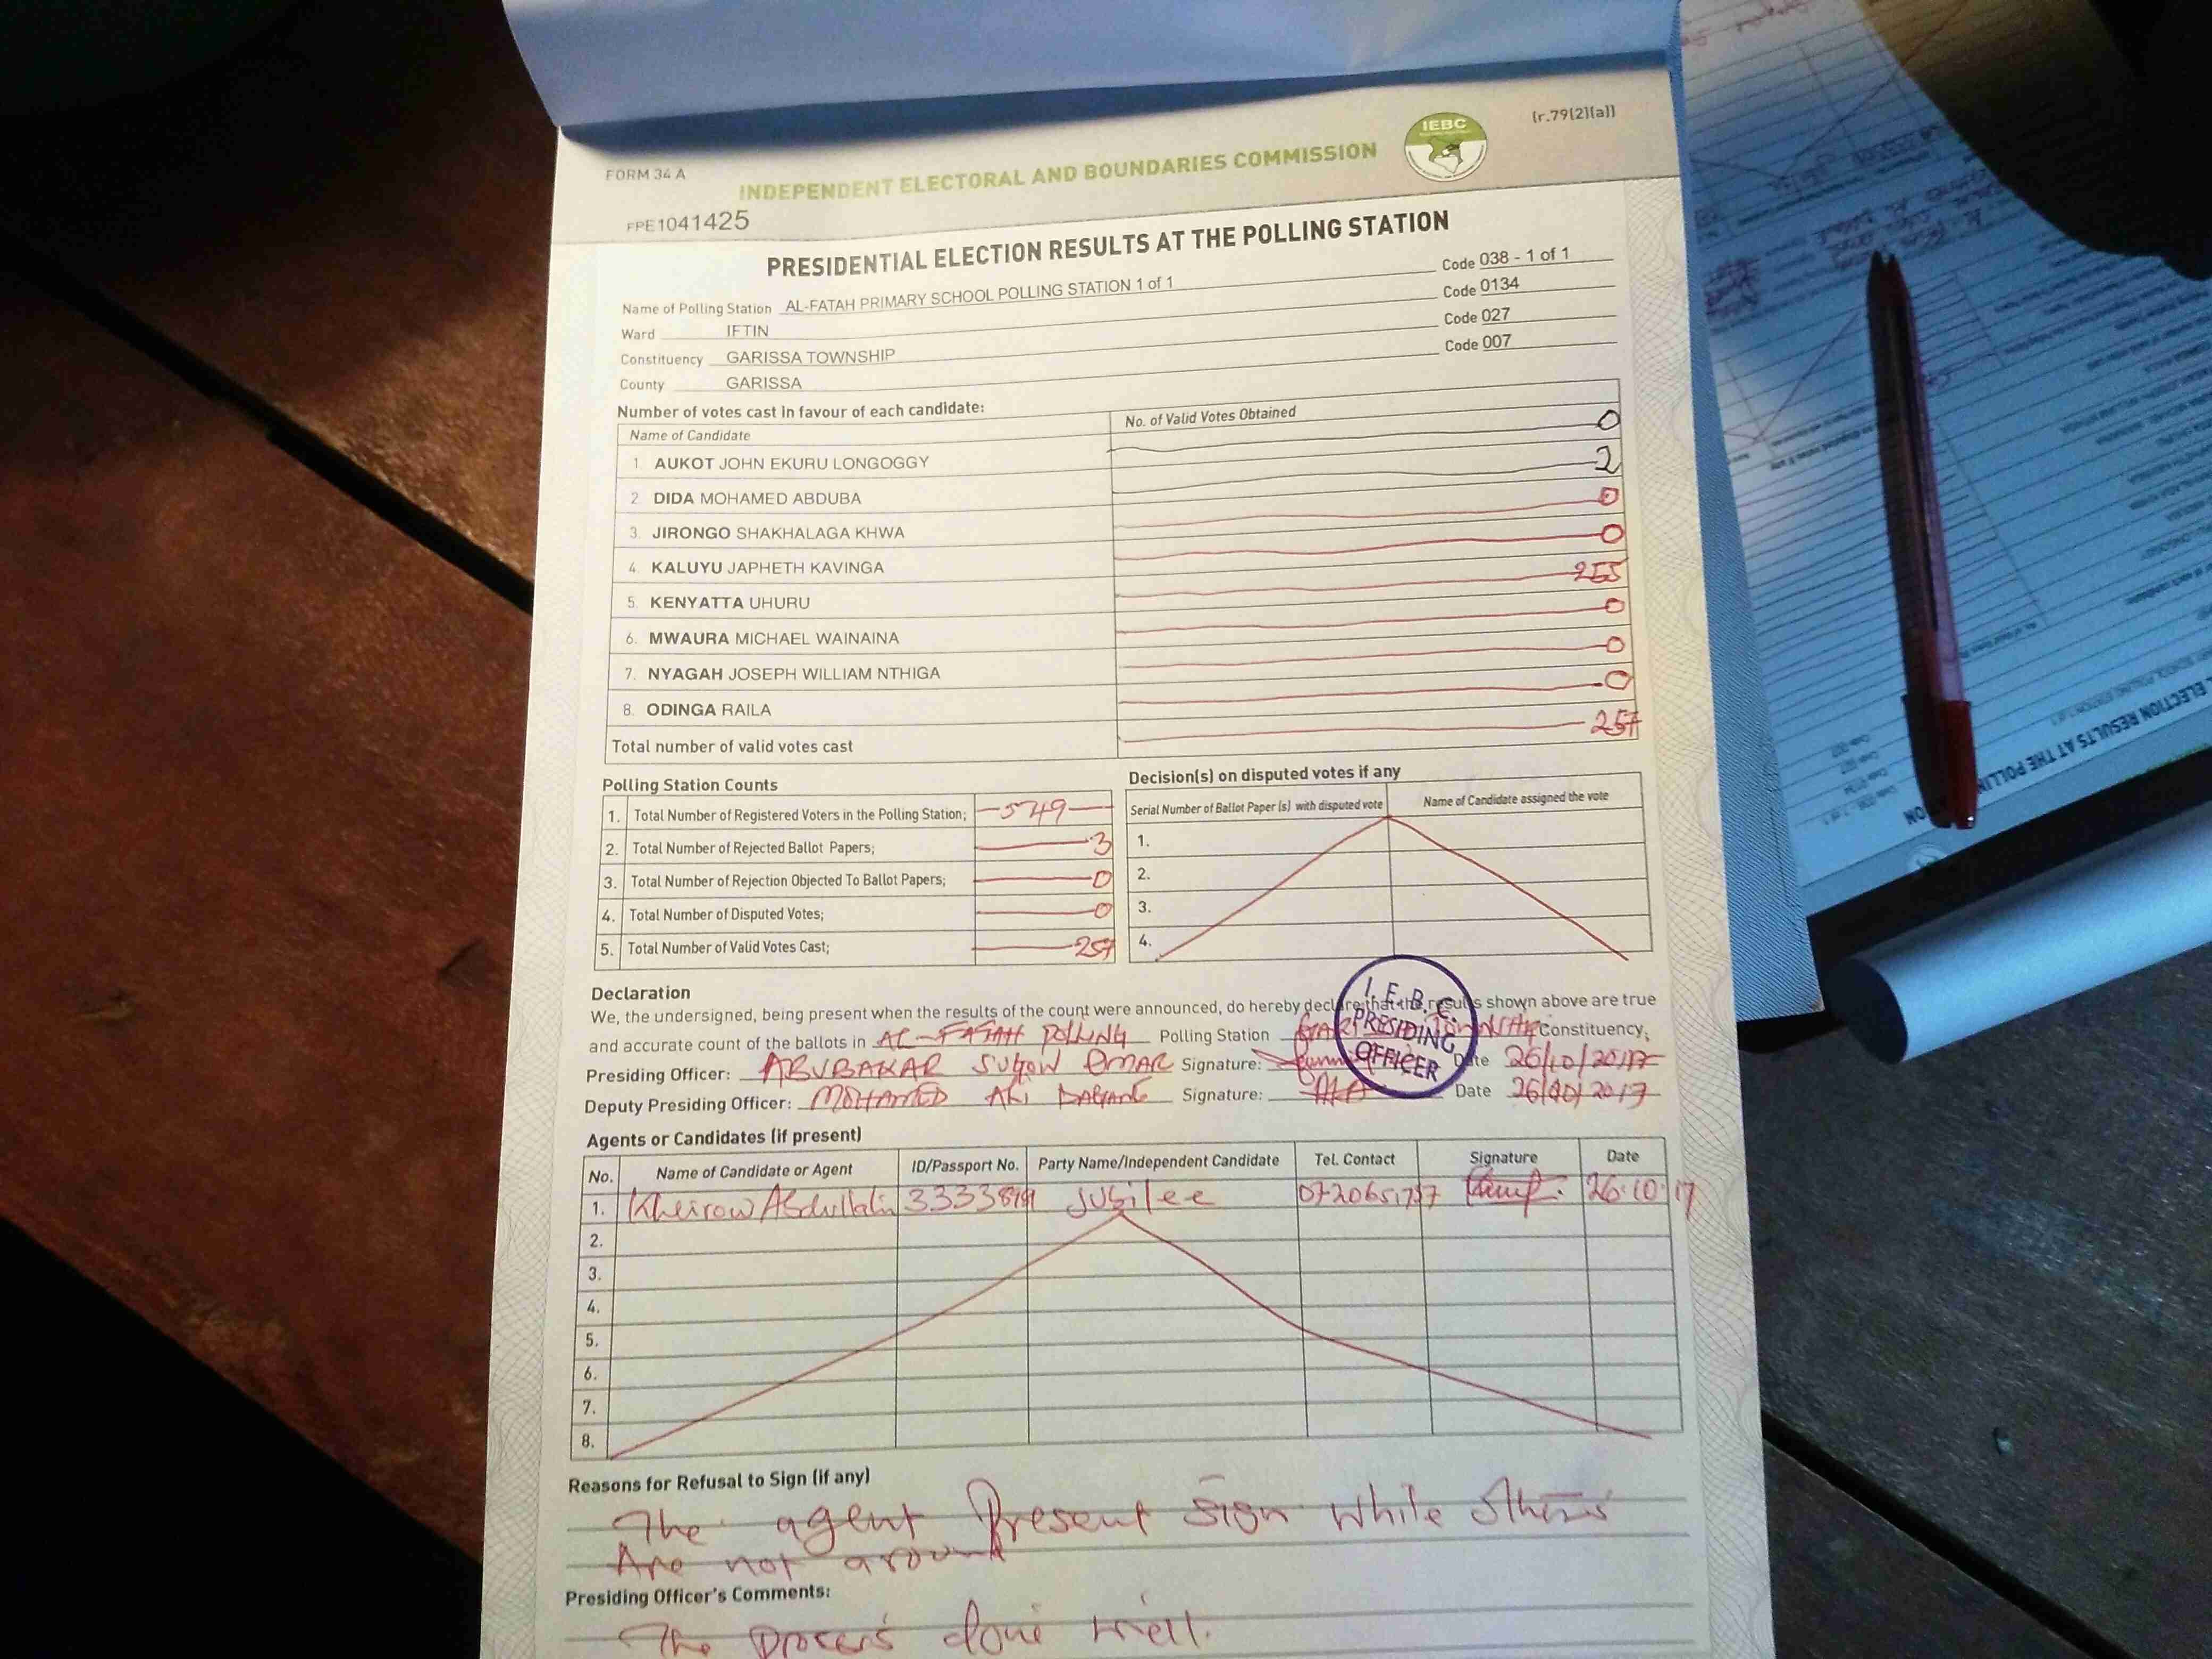 (r.79(2)(a))
FORM 34 A
INDEPENDENT ELECTORAL AND BOUNDARIES COMMISSION
IEBC
FPE1041425
PRESIDENTIAL ELECTION RESULTS AT THE POLLING STATION
Name of Polling Station AL-FATAH PRIMARY SCHOOL POLLING STATION 1 of 1 Code 038 - 1 of 1
Ward IFTIN Code 0134
Constituency GARISSA TOWNSHIP Code 027
County GARISSA Code 007
Number of votes cast in favour of each candidate:
Name of Candidate No. of Valid Votes Obtained
1. AUKOT JOHN EKURU LONGOGGY 0
2. DIDA MOHAMED ABDUBA 2
3. JIRONGO SHAKHALAGA KHWA 0
4. KALUYU JAPHETH KAVINGA 0
5. KENYATTA UHURU 255
6. MWAURA MICHAEL WAINAINA 0
7. NYAGAH JOSEPH WILLIAM NTHIGA 0
8. ODINGA RAILA 0
Total number of valid votes cast 257
Polling Station Counts
1. Total Number of Registered Voters in the Polling Station; 549
2. Total Number of Rejected Ballot Papers; 3
3. Total Number of Rejection Objected To Ballot Papers; 0
4. Total Number of Disputed Votes; 0
5. Total Number of Valid Votes Cast; 257
Decision(s) on disputed votes if any
Serial Number of Ballot Paper (s) with disputed vote Name of Candidate assigned the vote
1.
2.
3.
4.
Declaration
We, the undersigned, being present when the results of the count were announced, do hereby declare that the results shown above are true
and accurate count of the ballots in AL-FATAH POLLING Polling Station Constituency;
Presiding Officer: ABUBAKAR SUGOW OMAR Signature: Date 26/10/2017
Deputy Presiding Officer: MOHAMED Signature: Date 26/10/2017
I.E.B.C.
PRESIDING
OFFICER
Agents or Candidates (if present)
No. Name of Candidate or Agent ID/Passport No. Party Name/Independent Candidate Tel. Contact Signature Date
1. Kheirow Abdullahi Jubilee 26.10.17
2.
3.
4.
5.
6.
7.
8.
Reasons for Refusal to Sign (if any)
The agent Present sign while others
Are not around
Presiding Officer's Comments:
The Process done well.